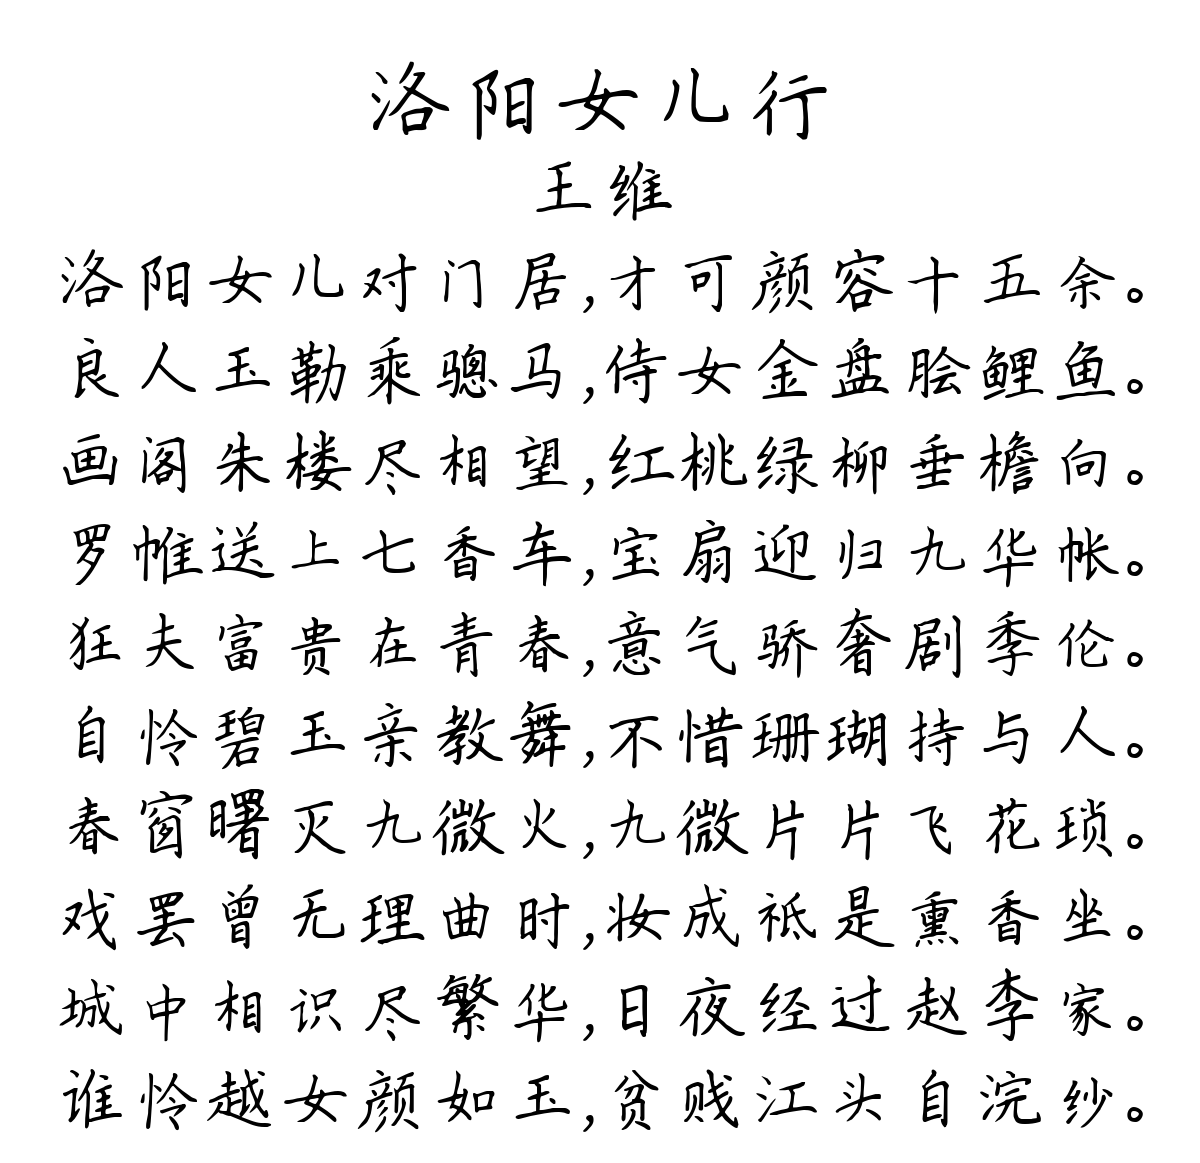 洛阳女儿行
王维
洛阳女儿对门居,才可颜容十五余。
良人玉勒乘骢马,侍女金盘脍鲤鱼。
画阁朱楼尽相望,红桃绿柳垂檐向。
罗帷送上七香车,宝扇迎归九华帐。
狂夫富贵在青春,意气骄奢剧季伦。
自怜碧玉亲教舞,不惜珊瑚持与人。
春窗曙灭九微火,九微片片飞花琐。
戏罢曾无理曲时,妆成祗是熏香坐。
城中相识尽繁华,日夜经过赵李家。
谁怜越女颜如玉,贫贱江头自浣纱。